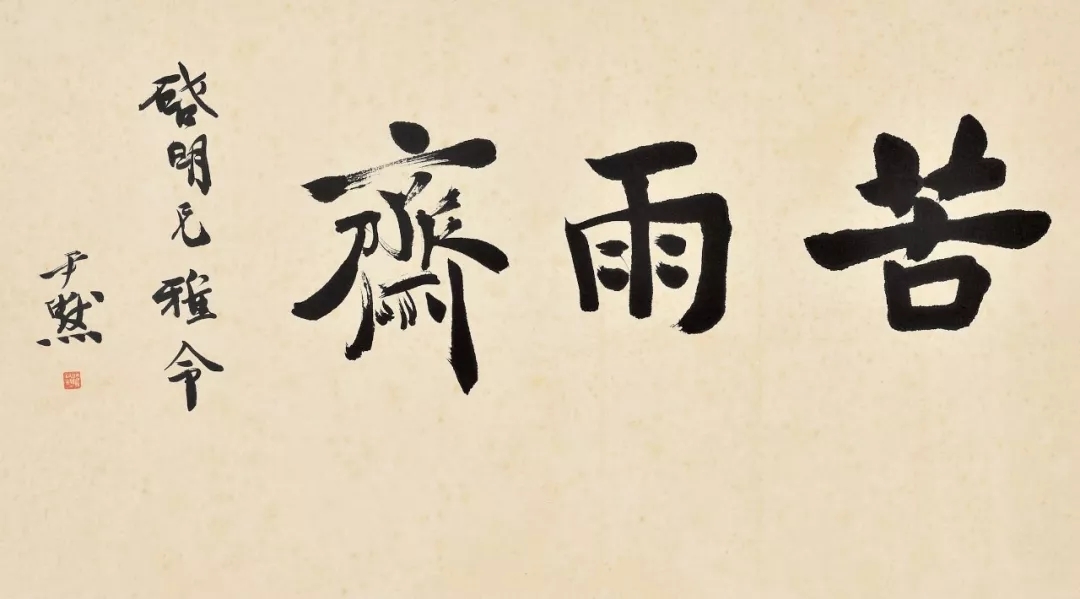 苦雨齋
啓明兄雅令
尹默